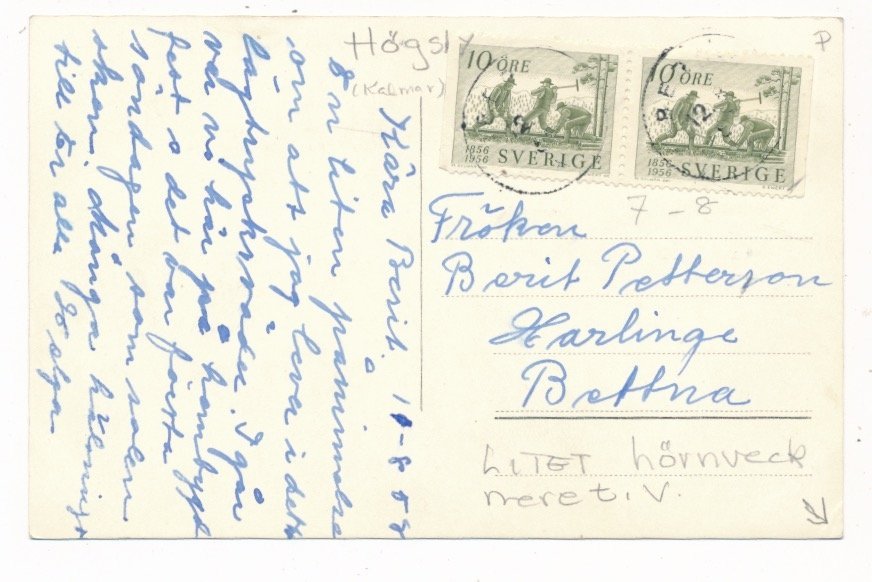 Högsby
(Kalmar)
P
10 ÖRE
1856
1956 SVERIGE
10 ÖRE
1856
1956 SVERIGE
7-8
Kära Berit. 11-8 58
En liten påminnelse
om att jag lever i detta
lågtrycksväder. I går
var vi här på hembygd
fest o det var första
söndagen som solen
sken. Många hälsningar
till Er alla
Fröken
Berit Petterson
Harlinge
Bettna
LITET hörnveck
nere t.v.